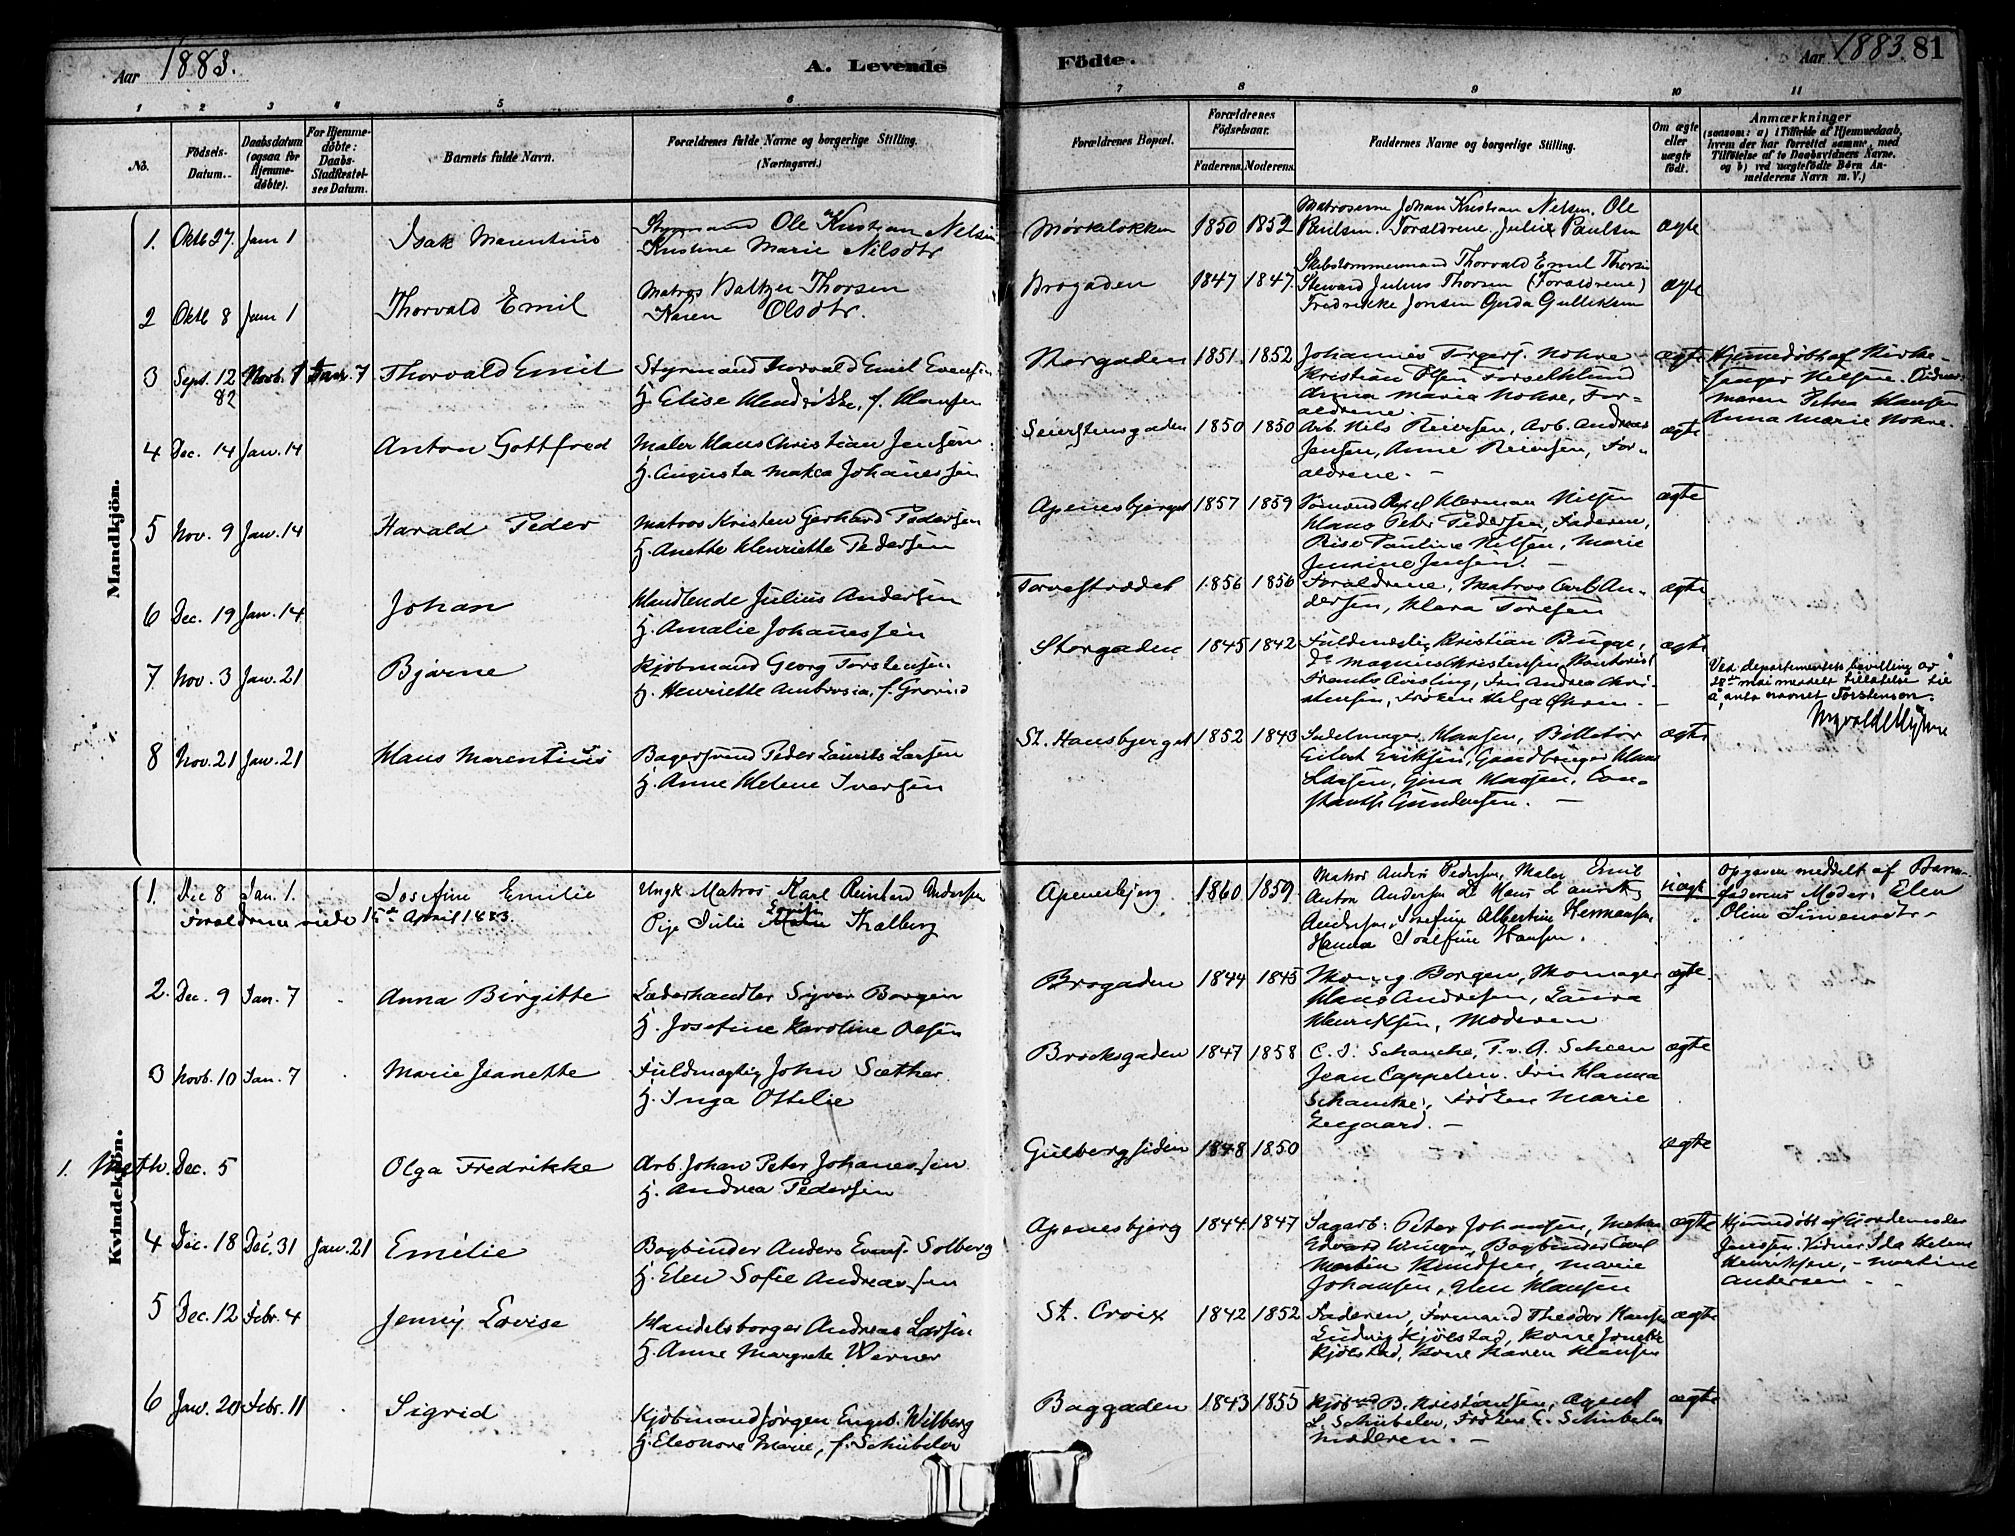 Aar 1883.
A. Levende
Fødte.
Aar 1883. 81
1 2 3 4 5 6 7 8 9 10 11
No.
Fødsels-Datum.
Daabsdatum (ogsaa for Hjemmedøbte).
For Hjemmedøbte: Daabs-Stadfæstelses Datum.
Barnets fulde Navn.
Forældrenes fulde Navne og borgerlige Stilling. (Næringsvei.)
Forældrenes Bopæl.
Forældrenes Fødselsaar.
Faderens. Moderens.
Faddernes Navne og borgerlige Stilling.
Om ægte eller uægte født.
Anmærkninger
(saasom: a) i Tilfælde af Hjemmedaab, hvem der har forrettet samme, med Tilføielse af to Daabsvidners Navne, og b) ved uægtefødte Børn Anmelderens Navn m. V.)
Mandkjön.
1. Oktb 27. Jan 1 Isak Marentius
Styrmand Ole Kristian Nelsen
Kristine Marie Nilsdtr
Mørkeløkken 1850 1852
Matroserne Johan Kristian Nelsen, Ole
Paulsen. Forældrene. Julie Paulsen
ægte
2 Oktb 8 Jan 1 Thorvald Emil
Matros Baltzer Thorsen
Karen Olsdtr.
Brogaden 1847 1847.
Skibstømmermand Thorvald Emil Thorsen
Steward Julius Thorsen (Forældrene)
Fredrikke Jensen Gerda Gulliksen
ægte
3 Sept. 12 82 Novb. Jan. 7 Thorvald Emil
Styrmand Thorvald Emil Evensen
H. Elise Hendrikke, f. Hansen
Norgaden 1851. 1852
Johannes Torgers. Nohre
Kristian Olsen
Anna Maria Nohre, For-
ældrene.
ægte
Hjemmedøbt af Kirke-
sanger Nilsen. Vidner:
Maren Petrea Hansen
Anna Marie Nohre.
4 Dec. 14 Jan. 14 Anton Gottfred
Maler Hans Christian Jensen
H. Augusta Makea Johanessen
Seierstensgaden 1850 1850
Arb. Nils Reiersen, Arb. Andreas
Jensen, Anne Reiersen, For-
ældrene. —
ægte
5 Nov. 9 Jan. 14 Harald Peder
Matros Kristen Gerhard Pedersen
H. Anette Henriette Pedersen
Apenesbjerget 1857 1859
Sømand Axel Herman Nilsen
Hans Peter Pedersen, Faderen,
Pauline Nilsen, Marie
Jensen. —
ægte
6 Dec. 19 Jan. 14 Johan
Handlende Julius Andersen
H. Amalie Johanessen
Torvestrædet 1856 1856
Forældrene, Matros Carl An-
dersen, Klara Toresen
ægte
7 Nov. 3 Jan. 21 Bjarne
Kjøbmand Georg Torstensen
H. Henriette Ambrosia, f.
Storgaden 1845 1842
Fuldmægtig Kristian Bugge,
Do Magnus Christensen, Kontorist
Frants, Fru Andrea Chri-
stensen, Frøken Helga
ægte
Ved departementets bevilling av
28de mai meddelt tillatelse til
å anta navnet Torstenson.
8 Nov. 21 Jan. 21 Hans Marentius
Bagersvend Peder Laurits Larsen
H. Anne Helene Iversen
St. Hansbjerget 1852 1843
Sadelmager Hansen, Billetør
Eilert Eriksen, Gaardbruger Hans
Larsen, Gina Hansen, Con-
stantse Gundersen. —
ægte
Kvindekjön.
1. Dec 8 Jan. 1. Josefine Emilie
Forældrene viede 15de April 1883.
Ungk Matros Karl Reinhard Andersen
Pige Julie Thalberg
Apenesbjerg 1860 1859
Matros Andr. Pedersen, Maler Emil
Anton Andersen Do Hans Laurits
Andersen, Josefine Albertine Hermansen,
Hanna Josefine Hansen.
uægte
Opgaven meddelt af Barne-
faderens Moder, Elen
Oline Simensdtr.
2. Dec. 9 Jan. 7 Anna Birgitte
Læderhandler Syver Borgen
H. Josefine Karoline Olsen
Brogaden 1844 1845
Borgen, Skomager
Hans Andresen, Laura
Henriksen, Moderen
ægte
3 Novb. 10 Jan. 7 Marie Jeanette
Fuldmægtig John Sæther
H. Inga Ottilie
Brochsgaden 1847 1858
C. I. Schancke, P. v. A. Scheen
Jean Cappelen. Fru Hanna
Schancke, Frøken Marie
Zeegaard. —
ægte
1. Meth. Dec. 5 Olga Fredrikke
Arb. Johan Peter Johanessen
H. Andrea Pedersen
Gulbergsiden 1848 1850
ægte
4 Dec. 18 Dec. 31 Jan. 21 Emelie
Bogbinder Anders Evens. Solberg
H. Elen Sofie Andreassen
Apenesbjerg 1844. 1847
Sagarb. Peter Johansen,
Edvard Unger, Bogbinder Carl
Martin Knudsen, Marie
Johansen, Hansen
ægte
Hjemmedøbt af Jordemoder
Jenssen. Vidner Ida Helene
Henriksen, – Martine
Andersen –
5 Dec. 12 Febr. 4 Jenny Lovise
Handelsborger Andreas Larsen
H. Anne Margrete Werner
St. Croix 1842 1852
Faderen, Formand Theodor Hansen
Ludvig Kjølstad, Kone Jonette
Kjølstad, Kone Karen Hansen
ægte
6 Jan. 20 Febr. 11 Sigrid
Kjøbmand Jørgen Engeb. Wilberg
H. Eleonora Marie, f. Schübeler
Baggaden 1843 1855
Kjøbmd B. Kristiansen, Agent
L. Schübeler, Frøken C. Schübeler
Moderen. —
ægte